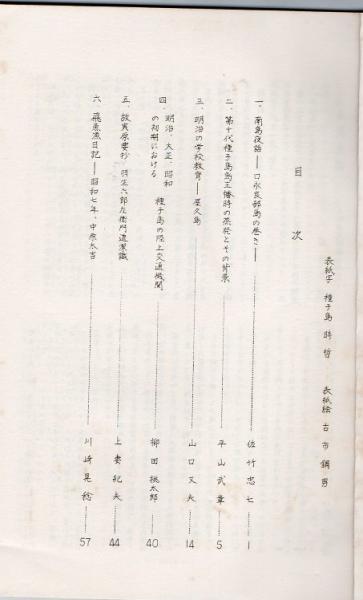 目次
表紙字 種子島時哲 表紙絵 古市鋼男
一、南島夜話――口永良部島の巻き―― 佐竹忠七 1
二、第十代種子島島主幡時の蒸発とその背景 平山武章 5
三、明治の学校教育――屋久島 山口又夫 14
四、明治、大正、昭和の初期における 種子島の陸上交通機関 柳田桃太郎 40
五、故実原要抄 羽生六郎左衛門道潔識 上妻紀夫 44
六、飛魚漁日記――昭和七年、中原本吉 川崎晃稔 57